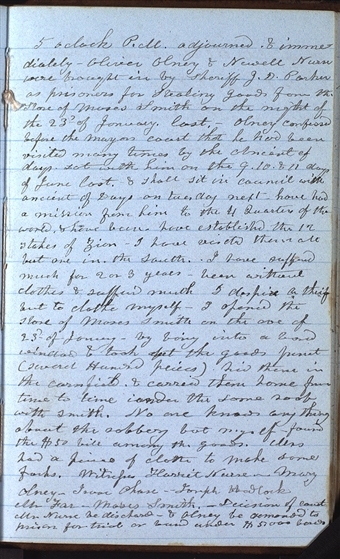 5 oclock P.M. adjourned. & imme
diately - Oliver Olney & Newell Nurse
were brought in by Sheriff J. D. Parker
as prisoners for stealing goods from the
store of Moses Smith on the night of
the 23d of January last, - Olney confessed
before the Mayors court that he had been
visited many times by the Ancient of
days. sat with him on the 9. 10. & 11 days
of June last. & shall sit in council with
ancient of Days on tuesday next - have had
a mission from him to the 4 Quarters of the
world, & have been & have established the 12
stakes of Zion - I have visited them all
but one in the South. I have suffered
much for 2 or 3 years - been without
clothes & suffered much. I despise a thief
but to clothe myself - I opened the
store of Moses Smith on the eve of
23d of January - by boring into a bord
window & took out the goods present
(several Hundred pieces) hid them in
the cornfield & carried them home from
time to time under the same roof
with Smith. No one knows anything
about the robbery but myself. found
the $50 bill among the goods.
had a piece of cloth to make some
Witness Harriet Nurse - Mary
Olney - Isaac Chase - Joseph Hadlock
Mr - Moses Smith. - Decision of court
Mr Nurse be discharged & Olney be commited to
prison for trial or bind under $5000 bonds